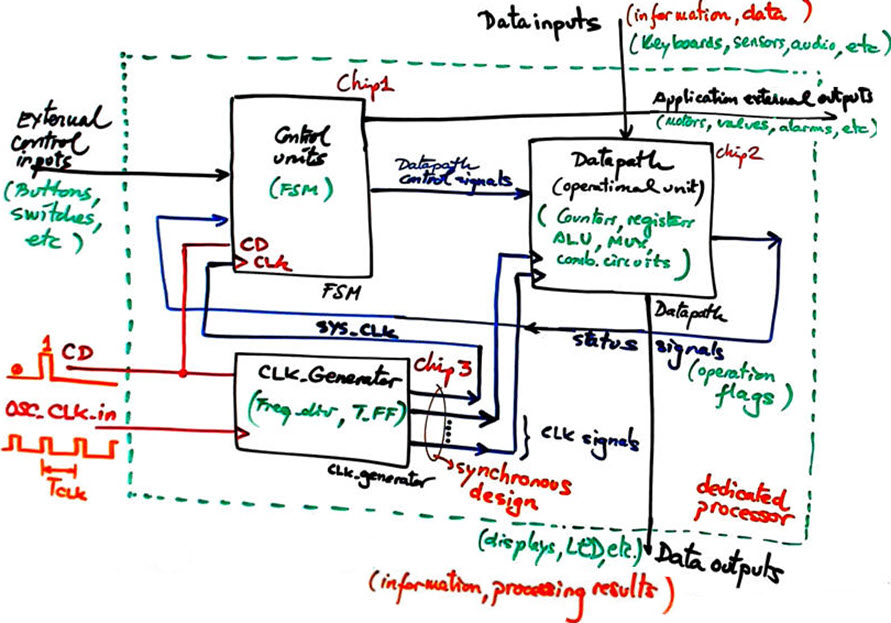 Data inputs
(information, data)
(Keyboards, sensors, audio, etc)
Chip1
Application external outputs
(Motors, valves, alarms, etc)
External
control
inputs
(Buttons,
switches,
etc)
Control
units
(FSM)
CD
CLK
FSM
Datapath
control signals
chip2
Datapath
(operational unit)
(Counters, registers
ALU, MUX,
comb. circuits)
Datapath
SYS_CLK
status signals
(operation
flags)
1
CD
OSC_CLK_in
TCLK
CLK_Generator
(Freq_div, T_FF)
CLK_generator
Chip3
CLK signals
synchronous
design
dedicated
processor
(displays, LED, etc.)
Data outputs
(information, processing results)